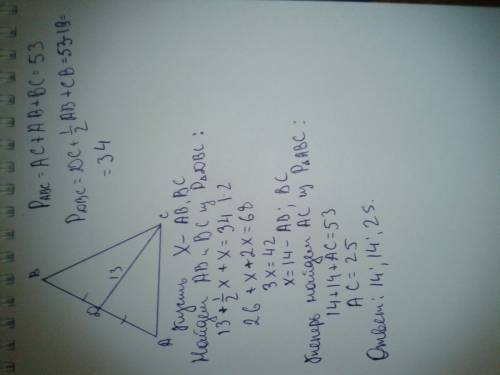 P_ABC = AC+AB+BC = 53
P_DBC = DC+ 1/2 AB + CB = 53-19=
= 34
B
D
13
A
C
Пусть X – AB, BC
Найдем AB и BC из P△DBC :
13 + 1/2 x + x = 34 | · 2
26 + x + 2x = 68
3x = 42
x = 14 – AB; BC
Теперь найдем AC из P△ABC :
14 + 14 + AC = 53
AC = 25
Ответ: 14; 14; 25.